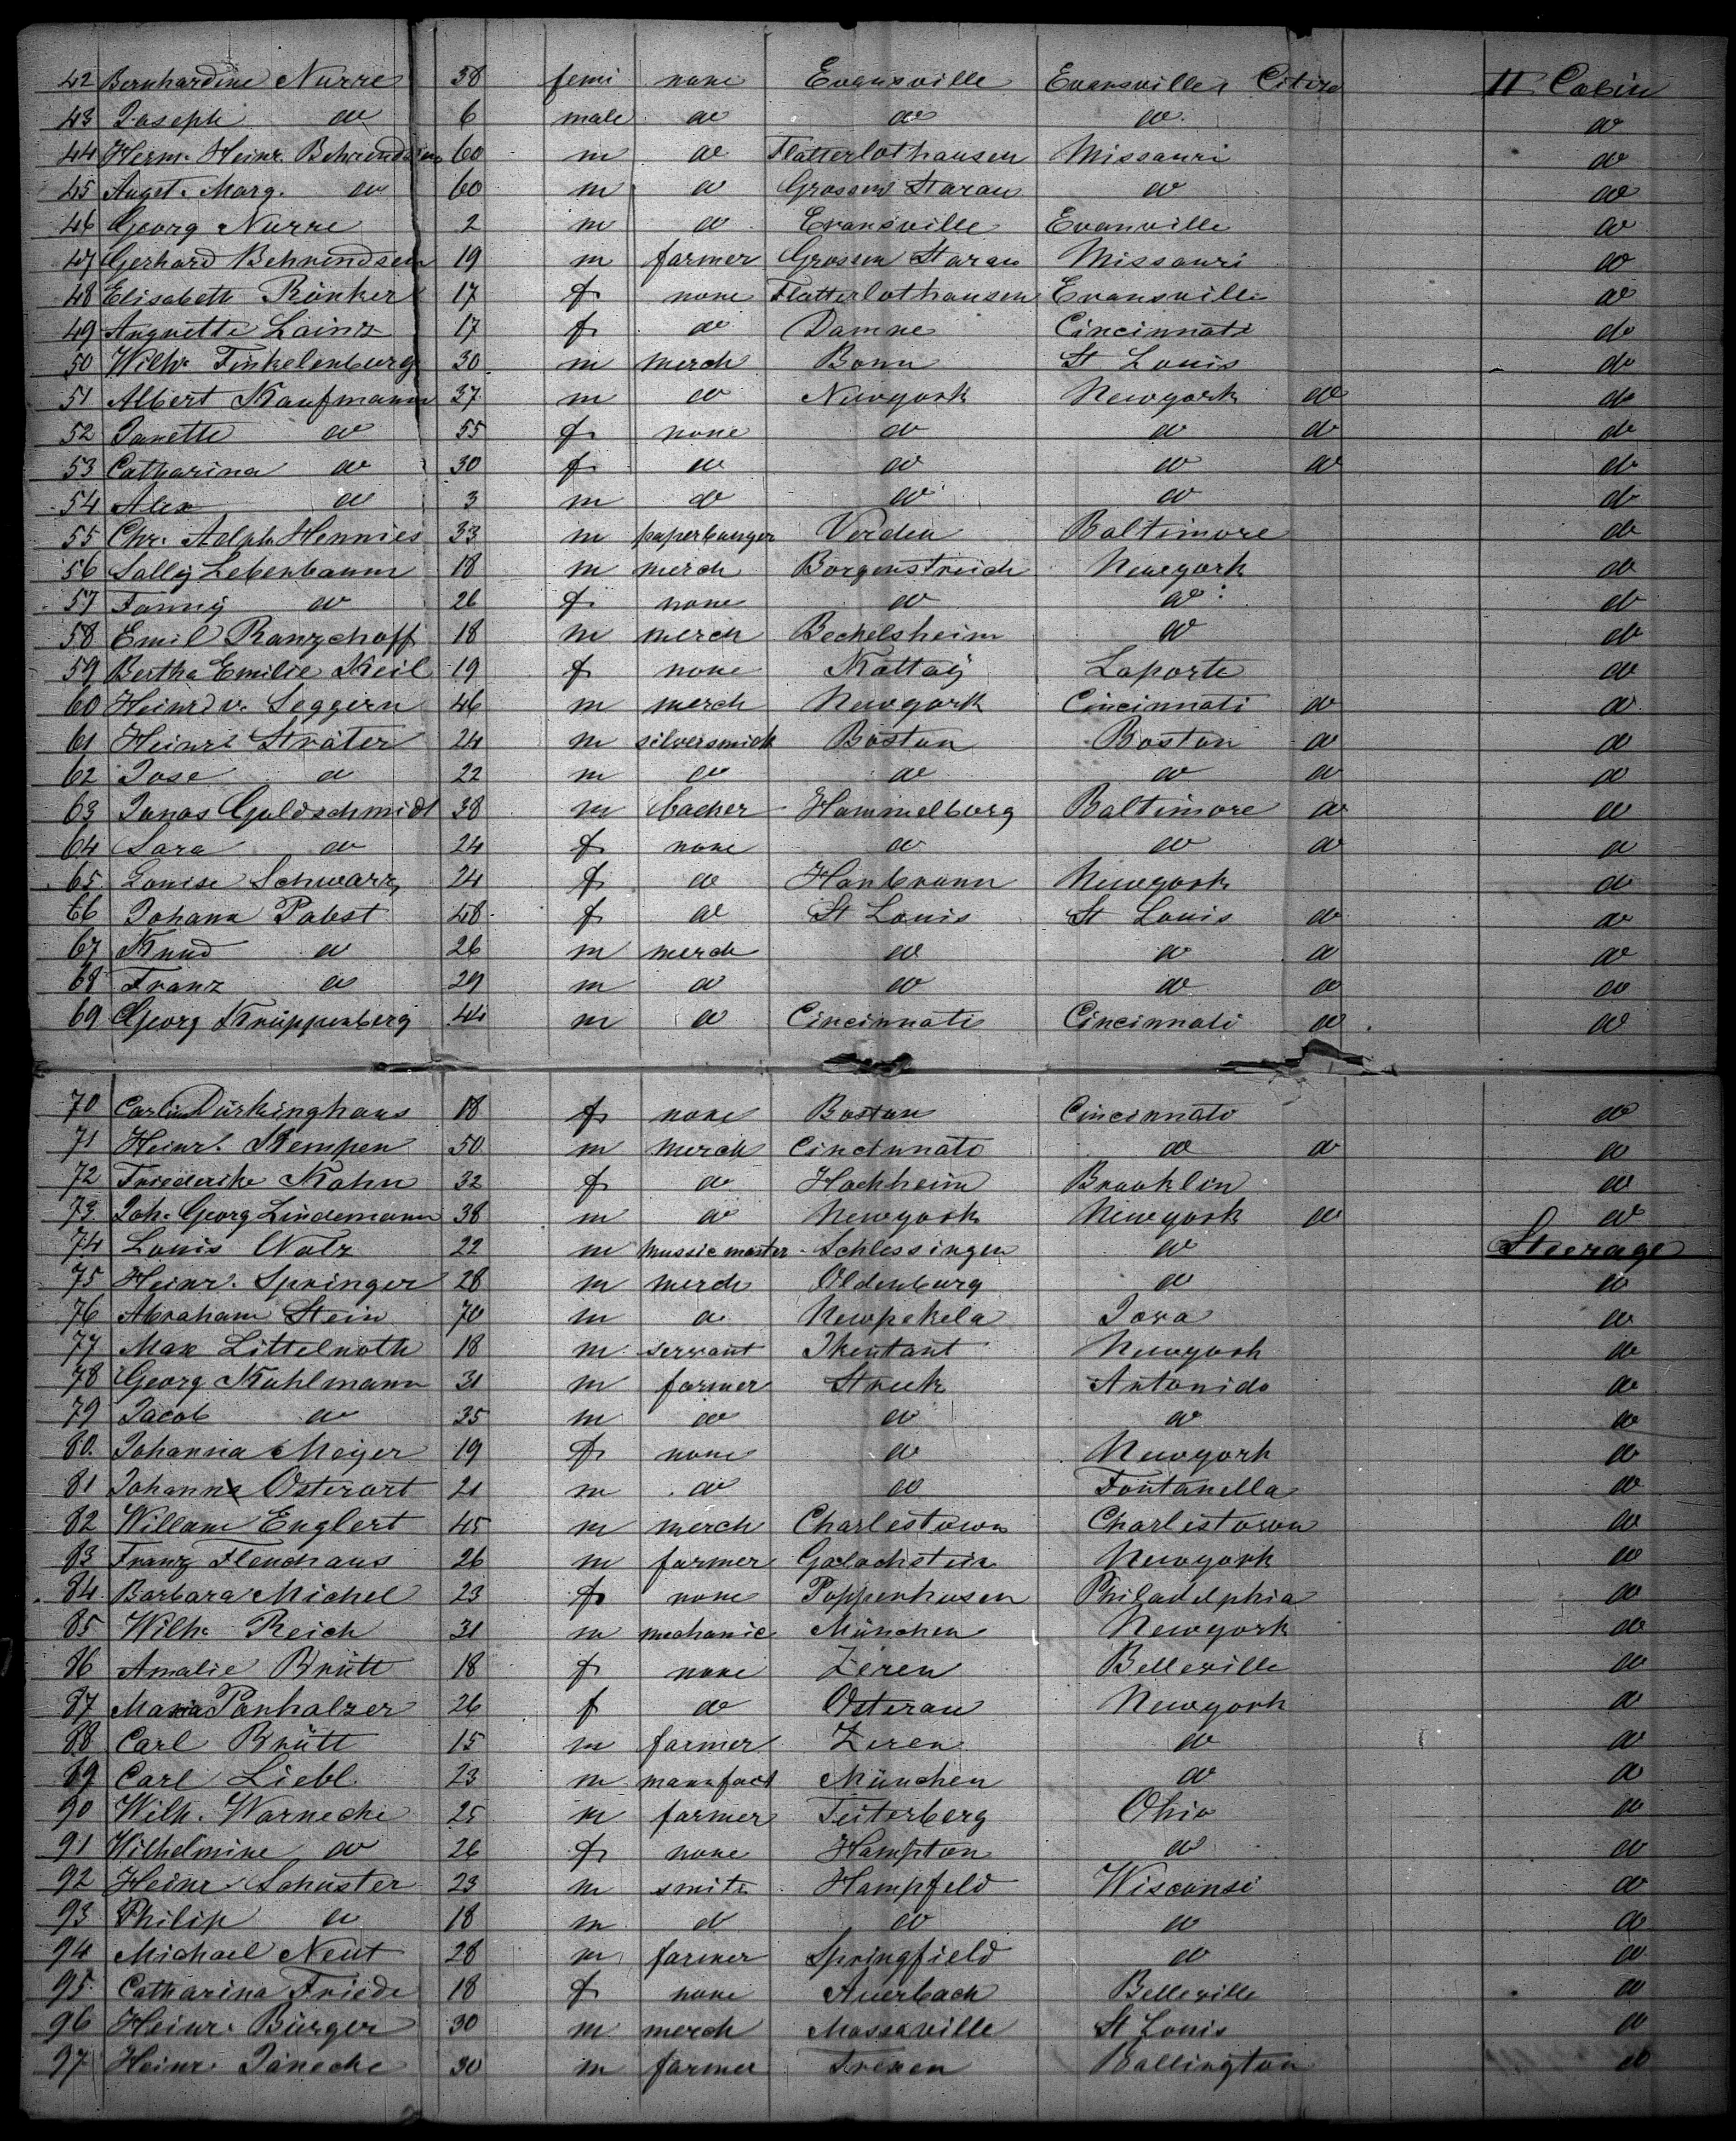 42 Bernhardine Nurre 58 femi none Evansville Evansville Citize II Cabin
43 Joseph do 6 male do do do do
44 Herm. Heinr. Behrendsen 60 m do Flatterlothausen Missouri do
45 Augst. Marg. do 60 m do Grossen Staran do do
46 Georg Nurre 2 m do Evansville Evanville do
47 Gerhard Behrendsen 19 m farmer Grossen Staran Missouri do
48 Elisabeth Rönker 17 f none Flatterlothausen Evansville do
49 Angnette Lainz 17 f do Damne Cincinnati do
50 Wilh. Finkelenburg 30 m merch Bonn St Louis do
51 Albert Kaufmann 37 m do Newyork Newyork do do
52 Janette do 55 f none do do do do
53 Catharina do 30 f do do do do do
54 Alex do 3 m do do do do
55 Chr. Adph Hennies 33 m paperhanger Verden Baltimore do
56 Sally Lebenbaum 18 m merch Borgenstreich Newyork do
57 Fanny do 26 f none do do do
58 Emil Ranzchoff 18 m merch Bechelsheim do do
59 Bertha Emilie Keil 19 f none Kattay Laporte do
60 Heinr v. Seggern 46 m merch Newyork Cincinnati do do
61 Heinr Sträter 24 m silversmith Boston Boston do do
62 Jose do 22 m do do do do do
63 Jonas Goldschmidt 38 m backer Hammelburg Baltimore do do
64 Sara do 24 f none do do do do
65 Louise Schwarz 24 f do Hanbrunn Newyork do
66 Johann Pabst 48 f do St Louis St Louis do do
67 Knud do 26 m merch do do do do
68 Franz do 29 m do do do do do
69 Georg Krüppenberg 44 m do Cincinnati Cincinnati do do
70 Carlin Dürkinghaus 18 f none Boston Cincinnati do
71 Heinr. Kempen 50 m merch Cincinnati do do do
72 Friederike Kahn 32 f do Hochheim Brooklin do
73 Joh. Georg Lindemann 38 m do Newyork Newyork do do
74 Louis Nolz 22 m mussic master Schlessingen do Steerage
75 Heinr. Springer 28 m merch Oldenburg do do
76 Abraham Stein 70 m do Newpekela Jova do
77 Max Littelnoth 18 m servant Ikentant Newyork do
78 Georg Kuhlmann 31 m farmer Struk Antonido do
79 Jacob do 35 m do do do do
80 Johanna Meyer 19 f none do Newyork do
81 Johann Osterort 21 m do do Fontanella do
82 Willam Englert 45 m merch Charlestown Charlestown do
83 Franz Flendhaus 26 m farmer Galachstein Newyork do
84 Barbara Michel 23 f none Poppenhusen Philadelphia do
85 Wilh. Reich 31 m mechanic München Newyork do
86 Amalie Brütt 18 f none Zeren Belleville do
87 Maria Panholzer 26 f do Osterau Newyork do
88 Carl Brütt 15 m farmer Zeren do do
89 Carl Liebl 23 m manufact München do do
90 Wilh. Warneche 25 m farmer Teiterberg Ohio do
91 Wilhelmine do 26 f none Hampton do do
92 Heinr. Schuster 23 m smith Hampfeld Wisconsi do
93 Philip do 18 m do do do do
94 Michael Neut 28 m farmer Springfield do do
95 Catharina Friede 18 f none Auerbach Belleville do
96 Heinr. Bürger 30 m merch Mossaville St Louis do
97 Heinr. Jäneche 30 m farmer Trexen Ballington do